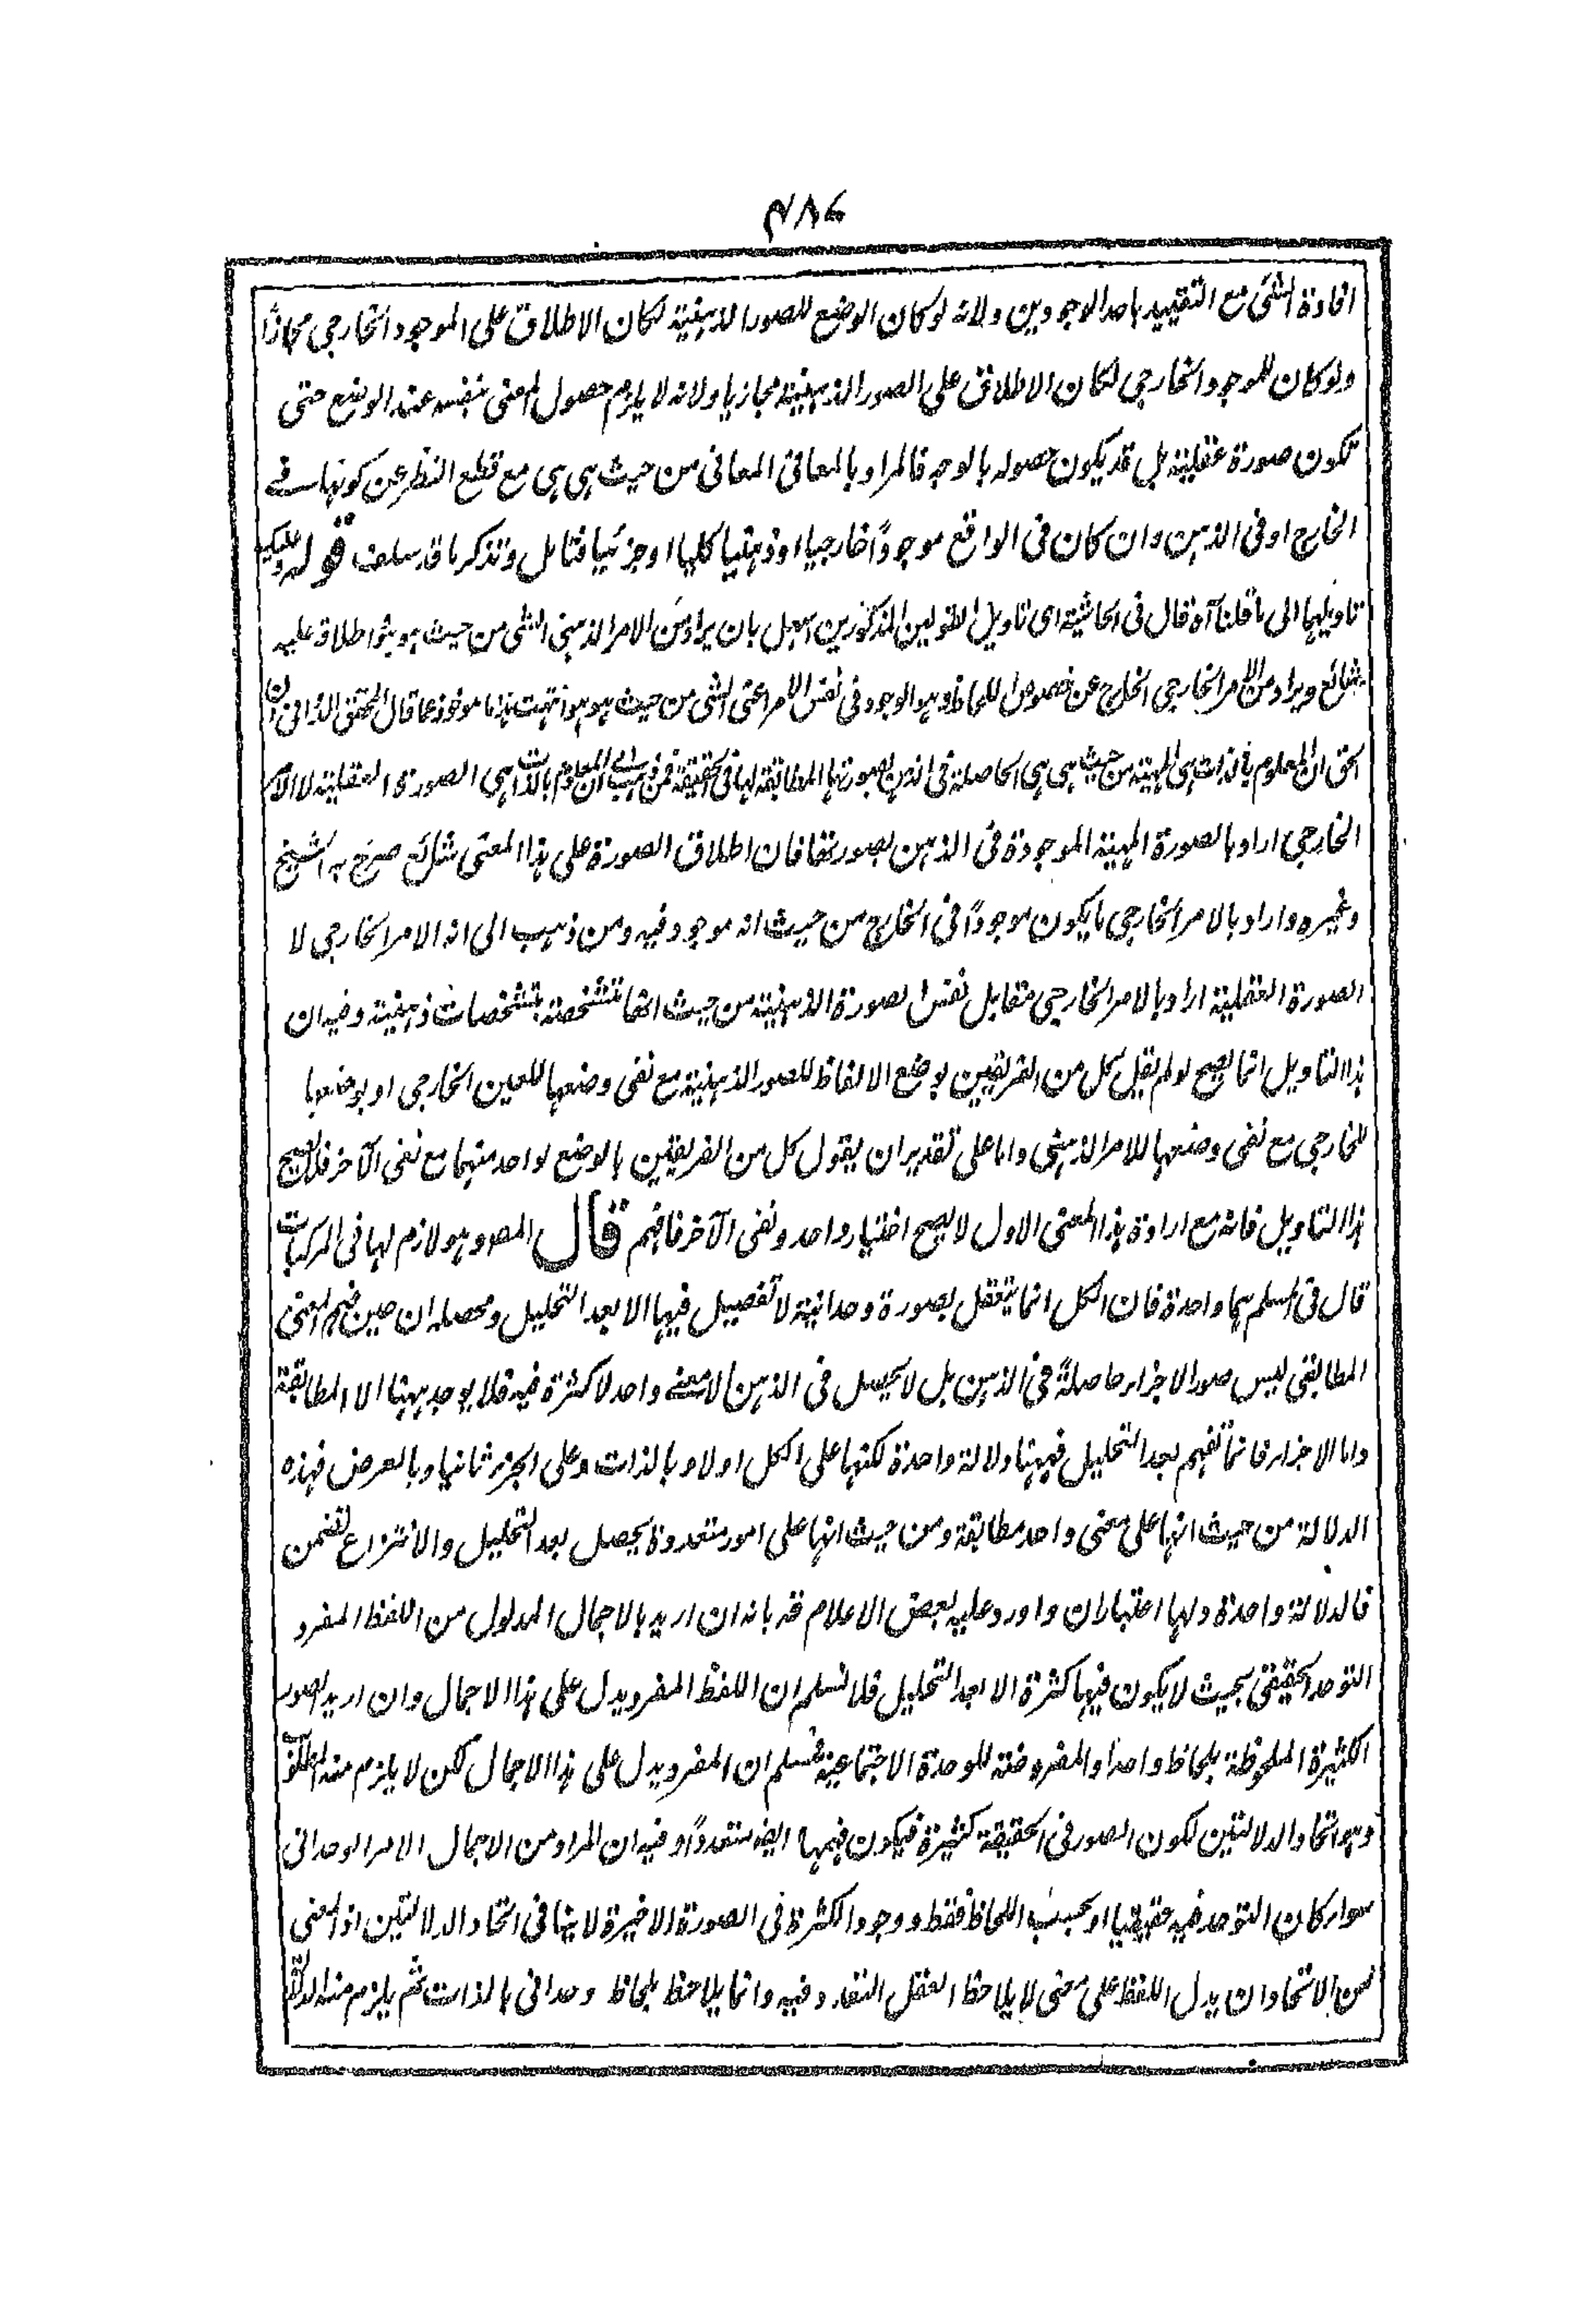 ٤٨٦
افادة الشئ مع التقييد باحد الوجودين ولانه لو كان الوضع للصور الذهنية لكان الاطلاق على الموجود الخارجي مجازًا
ولو كان للموجود الخارجي لكان الاطلاق على الصور الذهنية مجازيا ولانه لا يلزم حصول المعنى بنفسه عند الوضع حتى
تكون صورة عقلية بل قد يكون حصوله بالوجه فالمراد بالمعانى المعانى من حيث هى هى مع قطع النظر عن كونها فے
الخارج او فى الذهن وان كان فى الواقع موجودًا خارجيا او ذهنيا كليا او جزئيا فتامل وتذكر ما قد سلف قوله وعليك
تاويلها الى ما قلنا آه قال فى الحاشية اى تاويل القولين المذكورين اسهل بان يراد من الامر الذهنى الشى من حيث هو هو اطلاقه عليه
شائع ويراد من الامر الخارجى الخارج عن خصوص اللحاظ وهو الوجود فى نفس الامر اعنى الشى من حيث هو هو انتهت هذا ماخوذ عما قال المحقق الدوانى ان
الحق ان المعلوم بالذات هى المهية من حيث هى هى الحاصلة فى الذهن بصورتها المطابقة لها فى الحقيقة فمن ذهب الى ان المعلوم بالذات هى الصورة العقلية لا الامر
الخارجى اراد بالصورة المهية الموجودة فى الذهن بصورتها فان اطلاق الصورة على هذا المعنى شائع صرح به الشيخ
وغيره واراد بالامر الخارجى ما يكون موجودًا فى الخارج من حيث انه موجود فيه ومن ذهب الى انه الامر الخارجى لا
الصورة العقلية اراد بالامر الخارجى مقابل نفس الصورة الذهنية من حيث انها متشخصة بتشخصات ذهنية وفيه ان
هذا التاويل انما يصح لو لم يقل كل من الفريقين بوضع الالفاظ للصور الذهنية مع نفى وضعها للعين الخارجى او بوضعها
للخارجى مع نفى وضعها للامر الذهنى واما على تقدير ان يقول كل من الفريقين بالوضع لواحد منهما مع نفى الآخر فلا يصح
هذا التاويل فانه مع ارادة هذا المعنى الاول لا يصح اختيار واحد ونفى الآخر فافهم قال المصـ وهو لازم لها فى المركبات
قال فى السلم هما واحدة فان الكل انما يتعقل بصورة وحدانية لا تفصيل فيها الا بعد التحليل ومحصله ان حين فهم المعنى
المطابقى ليس صور الاجزاء حاصلةً فى الذهن بل لا يحصل فى الذهن الا معنے واحد لا كثرة فيه فلا يوجد ههنا الا المطابقة
واما الاجزاء فانما تفهم بعد التحليل فههنا دلالة واحدة لكنها على الكل اولا وبالذات وعلى الجزء ثانيا وبالعرض فهذه
الدلالة من حيث انها على معنى واحد مطابقة ومن حيث انها على امور متعددة يحصل بعد التحليل والانتزاع تضمن
فالدلالة واحدة ولها اعتباران واورد عليه بعض الاعلام قد بانه ان اريد بالاجمال المدلول من اللفظ المفرد
التوحد الحقيقى بحيث لا يكون فيها كثرة الا بعد التحليل فلا نسلم ان اللفظ المفرد يدل على هذا الاجمال وان اريد الصور
الكثيرة الملحوظة بلحاظ واحد او المعروضة للوحدة الاجتماعية فمسلم ان المفرد يدل على هذا الاجمال لكن لا يلزم منه المطلوب
وهو اتحاد الدلالتين لكون الصور فى الحقيقة كثيرة فيكون فهمها ايضـ متعددًا وفيه ان المراد من الاجمال الامر الوحدانى
سواء كان التوحد فيه حقيقيا او بحسب اللحاظ فقط ووجود الكثرة فى الصورة الاخيرة لا ينافى اتحاد الدلالتين اذ المعنى
من الاتحاد ان يدل اللفظ على معنى لا يلاحظ العقل التعدد فيه وانما يلاحظ بلحاظ وحدانى بالذات ثم يلزم منه الدلالة